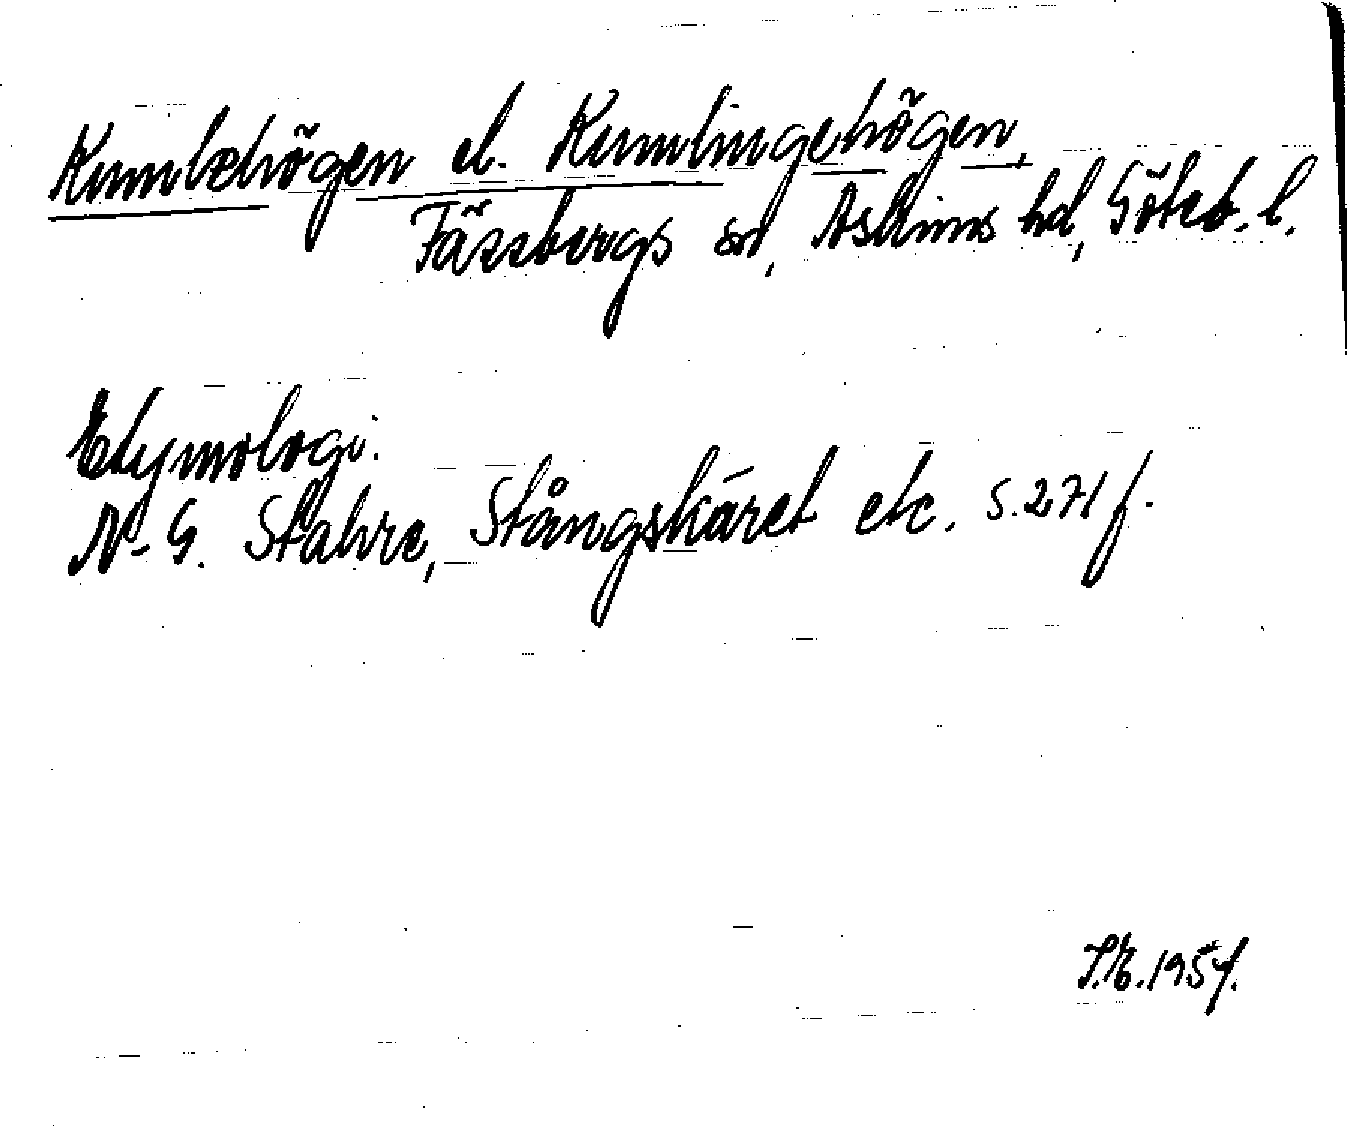 Kumblehögen el. Kumlingehögen,
Fässbergs sn, Askims hd, Göteb. l.
Etymologi.
N-G. Stahre, Stångskäret etc. s. 271 f.
1957.